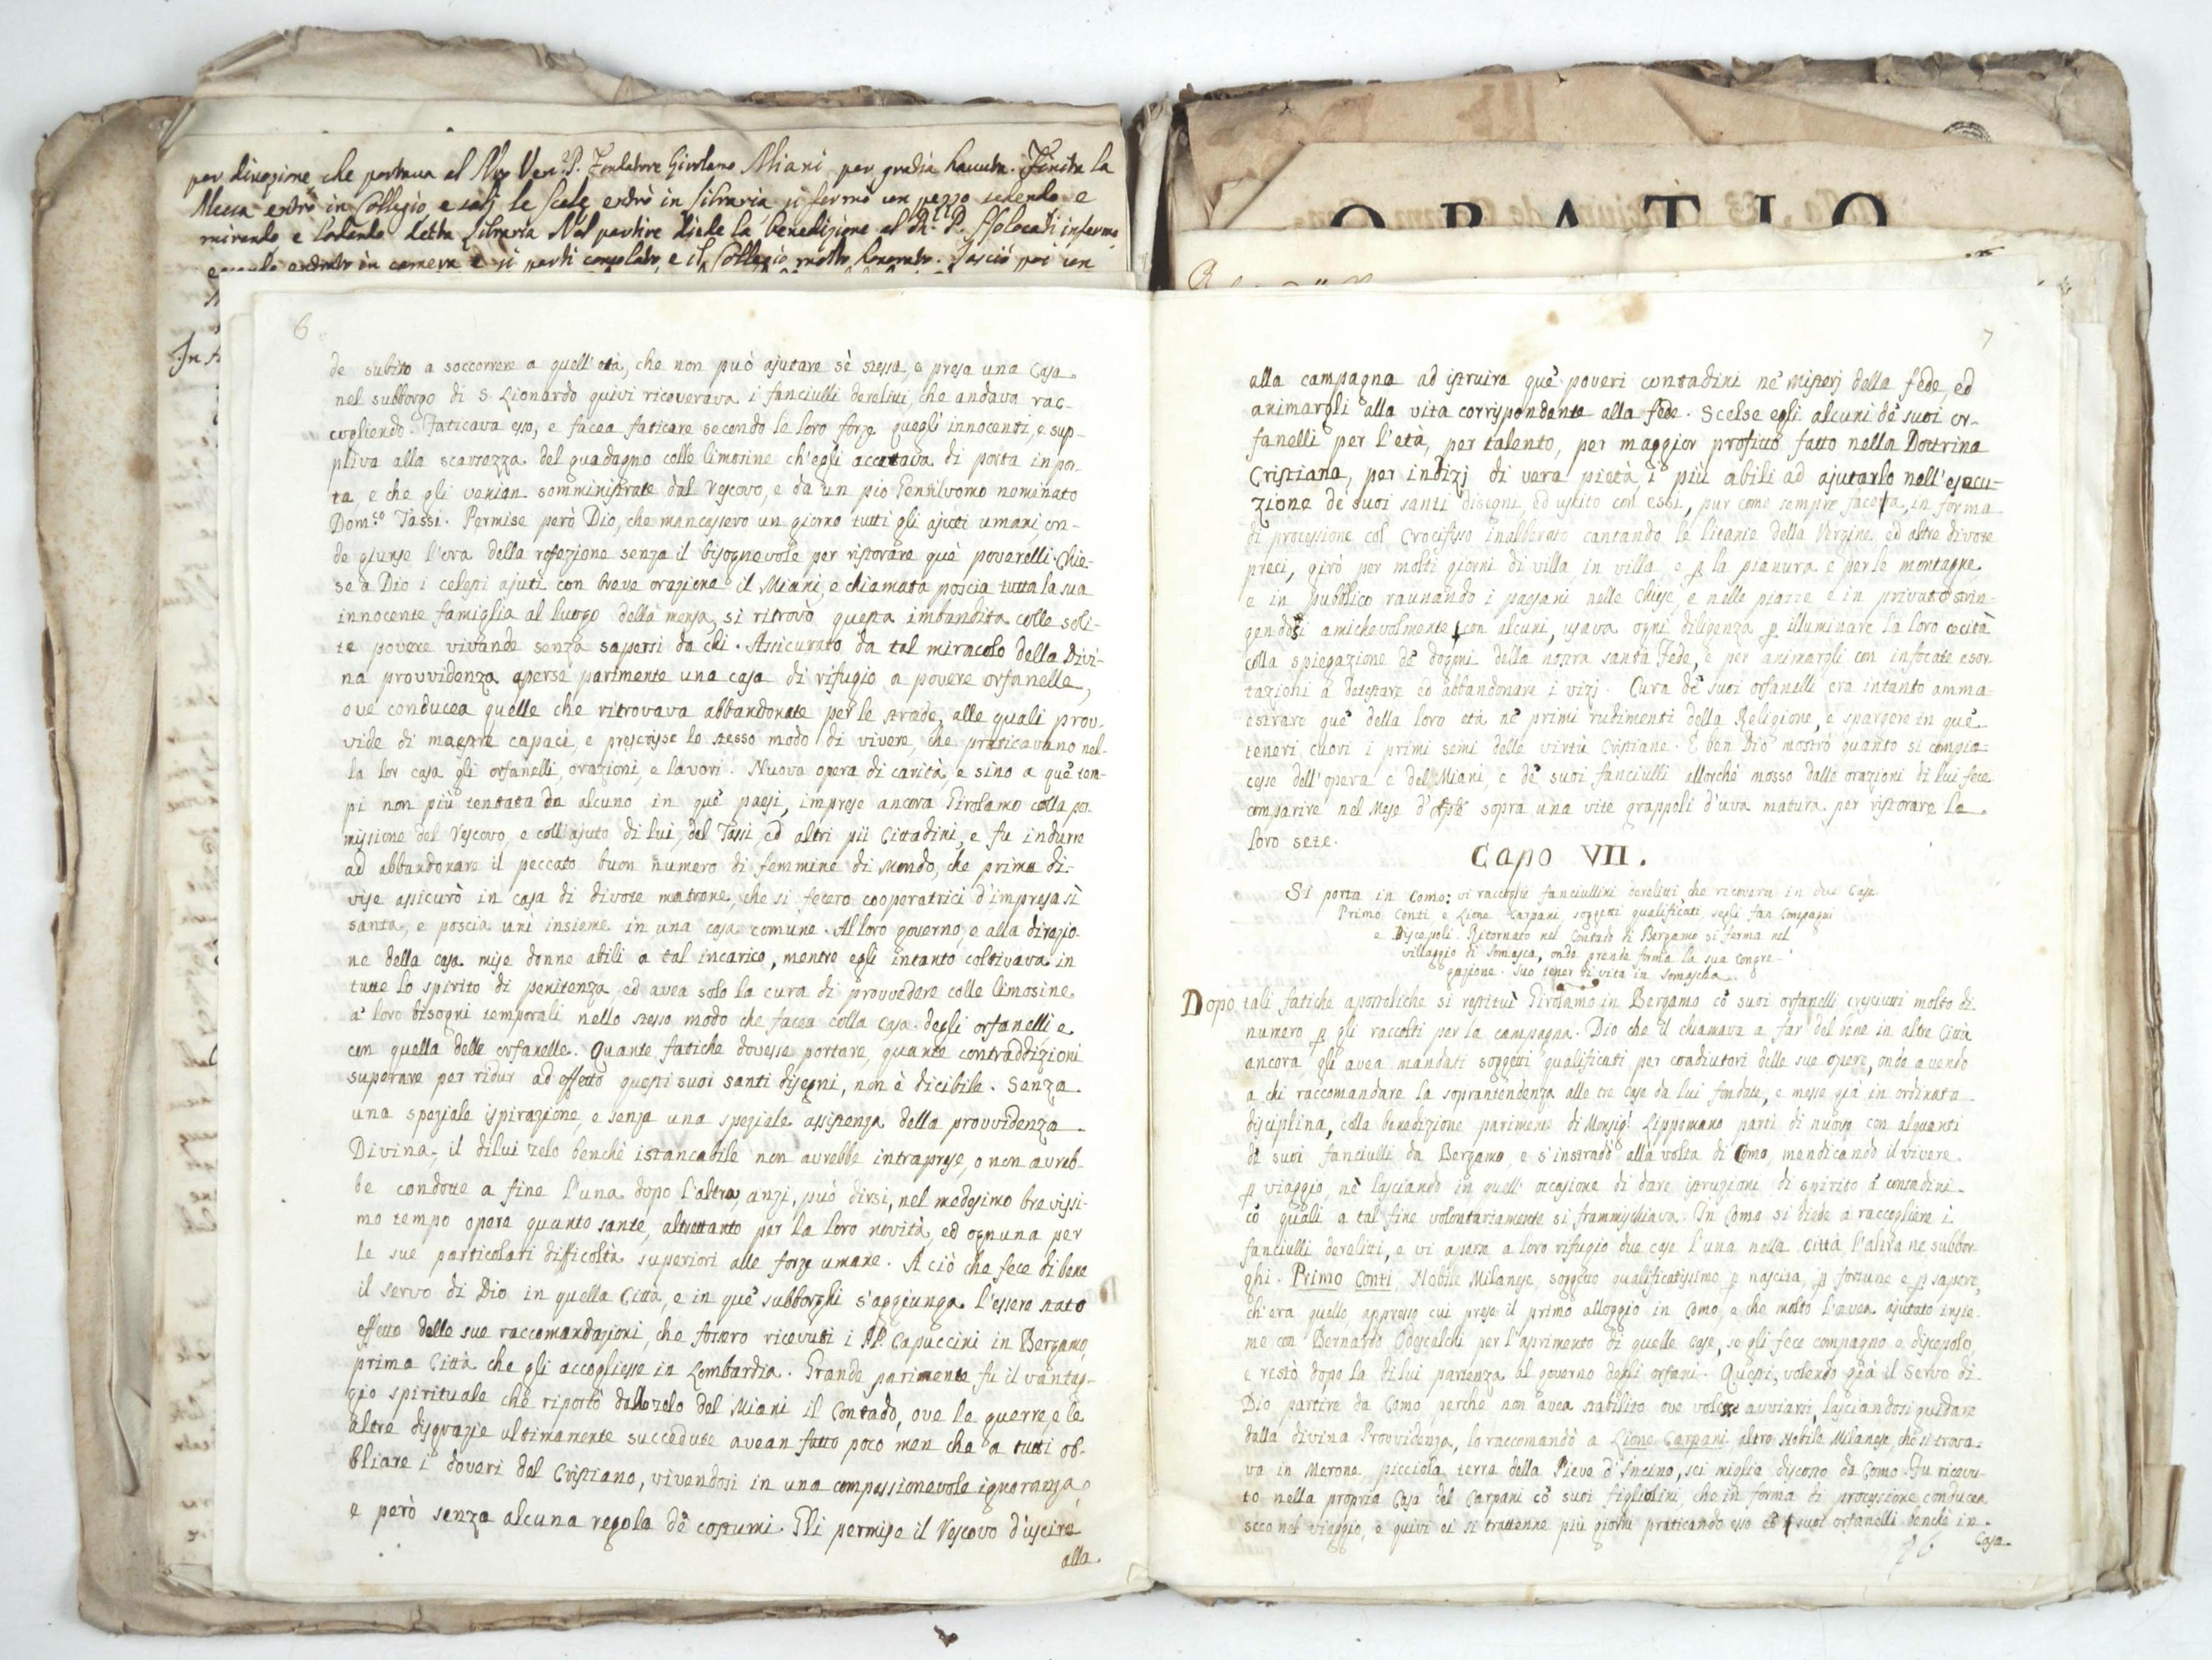 per divozione che portava al Nro Ven. P. Fondatore Girolamo Miani per gradia havuta. Finita la
Messa entrò in Collegio, e salj le scale entrò in libraria si fermò un pezzo sedendo e
mirando e lodando detta libraria Nel partire diede la benedizione al infermo
entrato in camera e si partì consolato e il Collegio molto honorato. Lasciò poi un
In
ORATIO
6
de subito a soccorrere a quell'età, che non può ajutare sè stessa, e presa una Casa
nel subborgo di S. Lionardo quivi ricoverava i fanciulli derelitti, che andava rac-
cogliendo. Faticava esso, e facea faticare secondo le loro forze quegl'innocenti, e sup-
pliva alla scarsezza del guadagno colle limosine ch'egli accattava di porta in por-
ta, e che gli venian somministrate dal Vescovo, e da un pio Gentiluomo nominato
Dom.co Tassi. Permise però Dio, che mancassero un giorno tutti gli ajuti umani, on-
de giunse l'ora della refezione senza il bisognevole per ristorare què poverelli. Chie-
se a Dio i celesti ajuti con breve orazione il Miani, e chiamata poscia tutta la sua
innocente famiglia al luogo della mensa, si ritrovò questa imbandita colle soli-
te povere vivande senza sapersi da chi. Assicurato da tal miracolo della Divi-
na provvidenza aperse parimente una casa di rifugio a povere orfanelle,
ove conducea quelle che ritrovava abbandonate per le strade, alle quali prov-
vide di maestre capaci, e prescrisse lo stesso modo di vivere, che praticavano nel-
la lor casa gli orfanelli, orazioni, e lavori. Nuova opera di carità, e sino a què tem-
pi non più tentata da alcuno in què paesi, imprese ancora Girolamo colla per-
missione del Vescovo, e coll'ajuto di lui, del Tassi, ed altri pii Cittadini, e fu indurre
ad abbandonare il peccato buon numero di femmine di Mondo, che prima di-
vise assicurò in casa di divote matrone, che si fecero cooperatrici d'impresa sì
santa, e poscia unì insieme in una casa comune. Al loro governo, e alla direzio-
ne della casa mise donne abili a tal incarico, mentre egli intanto coltivava in
tutte lo spirito di penitenza, ed avea solo la cura di provvedere colle limosine
a' loro bisogni temporali nello stesso modo che facea colla casa degli orfanelli e
con quella delle orfanelle. Quante fatiche dovesse portare, quante contraddizioni
superare per ridur ad effetto questi suoi santi disegni, non è dicibile. Senza
una speziale ispirazione, e senza una speziale assistenza della provvidenza
Divina, il di lui zelo benchè istancabile non avrebbe intraprese, o non avreb-
be condotte a fine l'una dopo l'altra, anzi, può dirsi, nel medesimo brevissi-
mo tempo opere quanto sante, altrettanto per la loro novità, ed ognuna per
le sue particolari difficoltà superiori alle forze umane. A ciò che fece di bene
il servo di Dio in quella Città, e in què subborghi s'aggiunga l'essere stato
effetto delle sue raccomandazioni, che fossero ricevuti i PP. Capuccini in Bergamo,
prima Città che gli accogliesse in Lombardia. Grande parimente fu il vantag-
gio spirituale che riportò dallo zelo del Miani il Contado, ove le guerre, e le
altre disgrazie ultimamente succedute avean fatto poco men che a tutti ob-
bliare i doveri del Cristiano, vivendosi in una compassionevole ignoranza,
e però senza alcuna regola dè costumi. Gli permise il Vescovo d'uscire
alla
7
alla campagna ad istruire què poveri contadini nè Misterj della fede, ed
animargli alla vita corrispondente alla fede. Scelse egli alcuni dè suoi or-
fanelli per l'età, per talento, per maggior profitto fatto nella Dottrina
Cristiana, per indizj di vera pietà i più abili ad ajutarlo nell'esecu-
zione dè suoi santi disegni, ed uscito con essi, pur come sempre facea, in forma
di processione col Crocifisso inalberato cantando le litanie della Vergine, ed altre divote
preci, girò per molti giorni di villa in villa, e p la pianura e per le montagne
e in pubblico raunando i paesani nelle Chiese, e nelle piazze e in privato strin-
gendosi amichevolmente con alcuni, usava ogni diligenza p illuminare la loro cecità
colla spiegazione dè dogmi della nostra santa Fede, e per animargli con infocate esor-
tazioni a detestare ed abbandonare i vizj. Cura dè suoi orfanelli era intanto amma-
estrare què della loro età nè primi rudimenti della Religione, e spargere in què
teneri cuori i primi semi delle virtù Cristiane. E ben Dio mostrò quanto si compia-
cesse dell'opera e del Miani, e dè suoi fanciulli allorchè mosso dalle orazioni di lui fece
comparire nel Mese d'Aple sopra una vite grappoli d'uva matura per ristorare la
loro sete.
Capo VII.
Si porta in Como: vi raccoglie fanciullini derelitti che ricovera in due Case.
Primo Conti e Lione Carpani soggetti qualificati segli fan Compagni
e Discepoli. Ritornato nel Contado di Bergamo si ferma nel
villaggio di Somasca, onde prende forma la sua Congre-
gazione. Suo tener di vita in Somascha.
Dopo tali fatiche apostoliche si restituì Girolamo in Bergamo cò suoi orfanelli cresciuti molto di
numero p gli raccolti per la campagna. Dio che il chiamava a far del bene in altre Città
ancora gli avea mandati soggetti qualificati per coadiutori delle sue opere, onde avendo
a chi raccomandare la soprantendenza alle tre case da lui fondate, e messe già in ordinata
disciplina, colla benedizione parimente di Monsig.r Lippomano partì di nuovo con alquanti
dè suoi fanciulli da Bergamo, e s'instradò alla volta di Como, mendicando il vivere
p viaggio, nè lasciando in quell'occasione di dare istruzioni di spirito a' contadini
cò quali a tal fine volontariamente si frammischiava. In Como si diede a raccogliere i
fanciulli derelitti, e vi aperse a loro rifugio due case l'una nella Città, l'altra ne subbor-
ghi. Primo Conti Nobile Milanese, soggetto qualificatissimo p nascita, p fortune e p sapere,
ch'era quello, appresso cui prese il primo alloggio in Como, e che molto l'avea ajutato insie-
me con Bernardo Odescalchi per l'aprimento di quelle case, se gli fece compagno e discepolo,
e restò dopo la di lui partenza al governo degli orfani. Questi, volendo già il Servo di
Dio partire da Como, perchè non avea stabilito ove volesse avviarsi, lasciandosi guidare
dalla divina Provvidenza, lo raccomandò a Lione Carpani altro Nobile Milanese, che si trova-
va in Merone picciola terra della Pieve d'Incino, sei miglia discosto da Como. Fu ricevu-
to nella propria Casa del Carpani cò suoi figliolini, che in forma di processione conducea
seco nel viaggio, e quivi ei si trattenne più giorni praticando esso cò suoi orfanelli benchè in
Casa